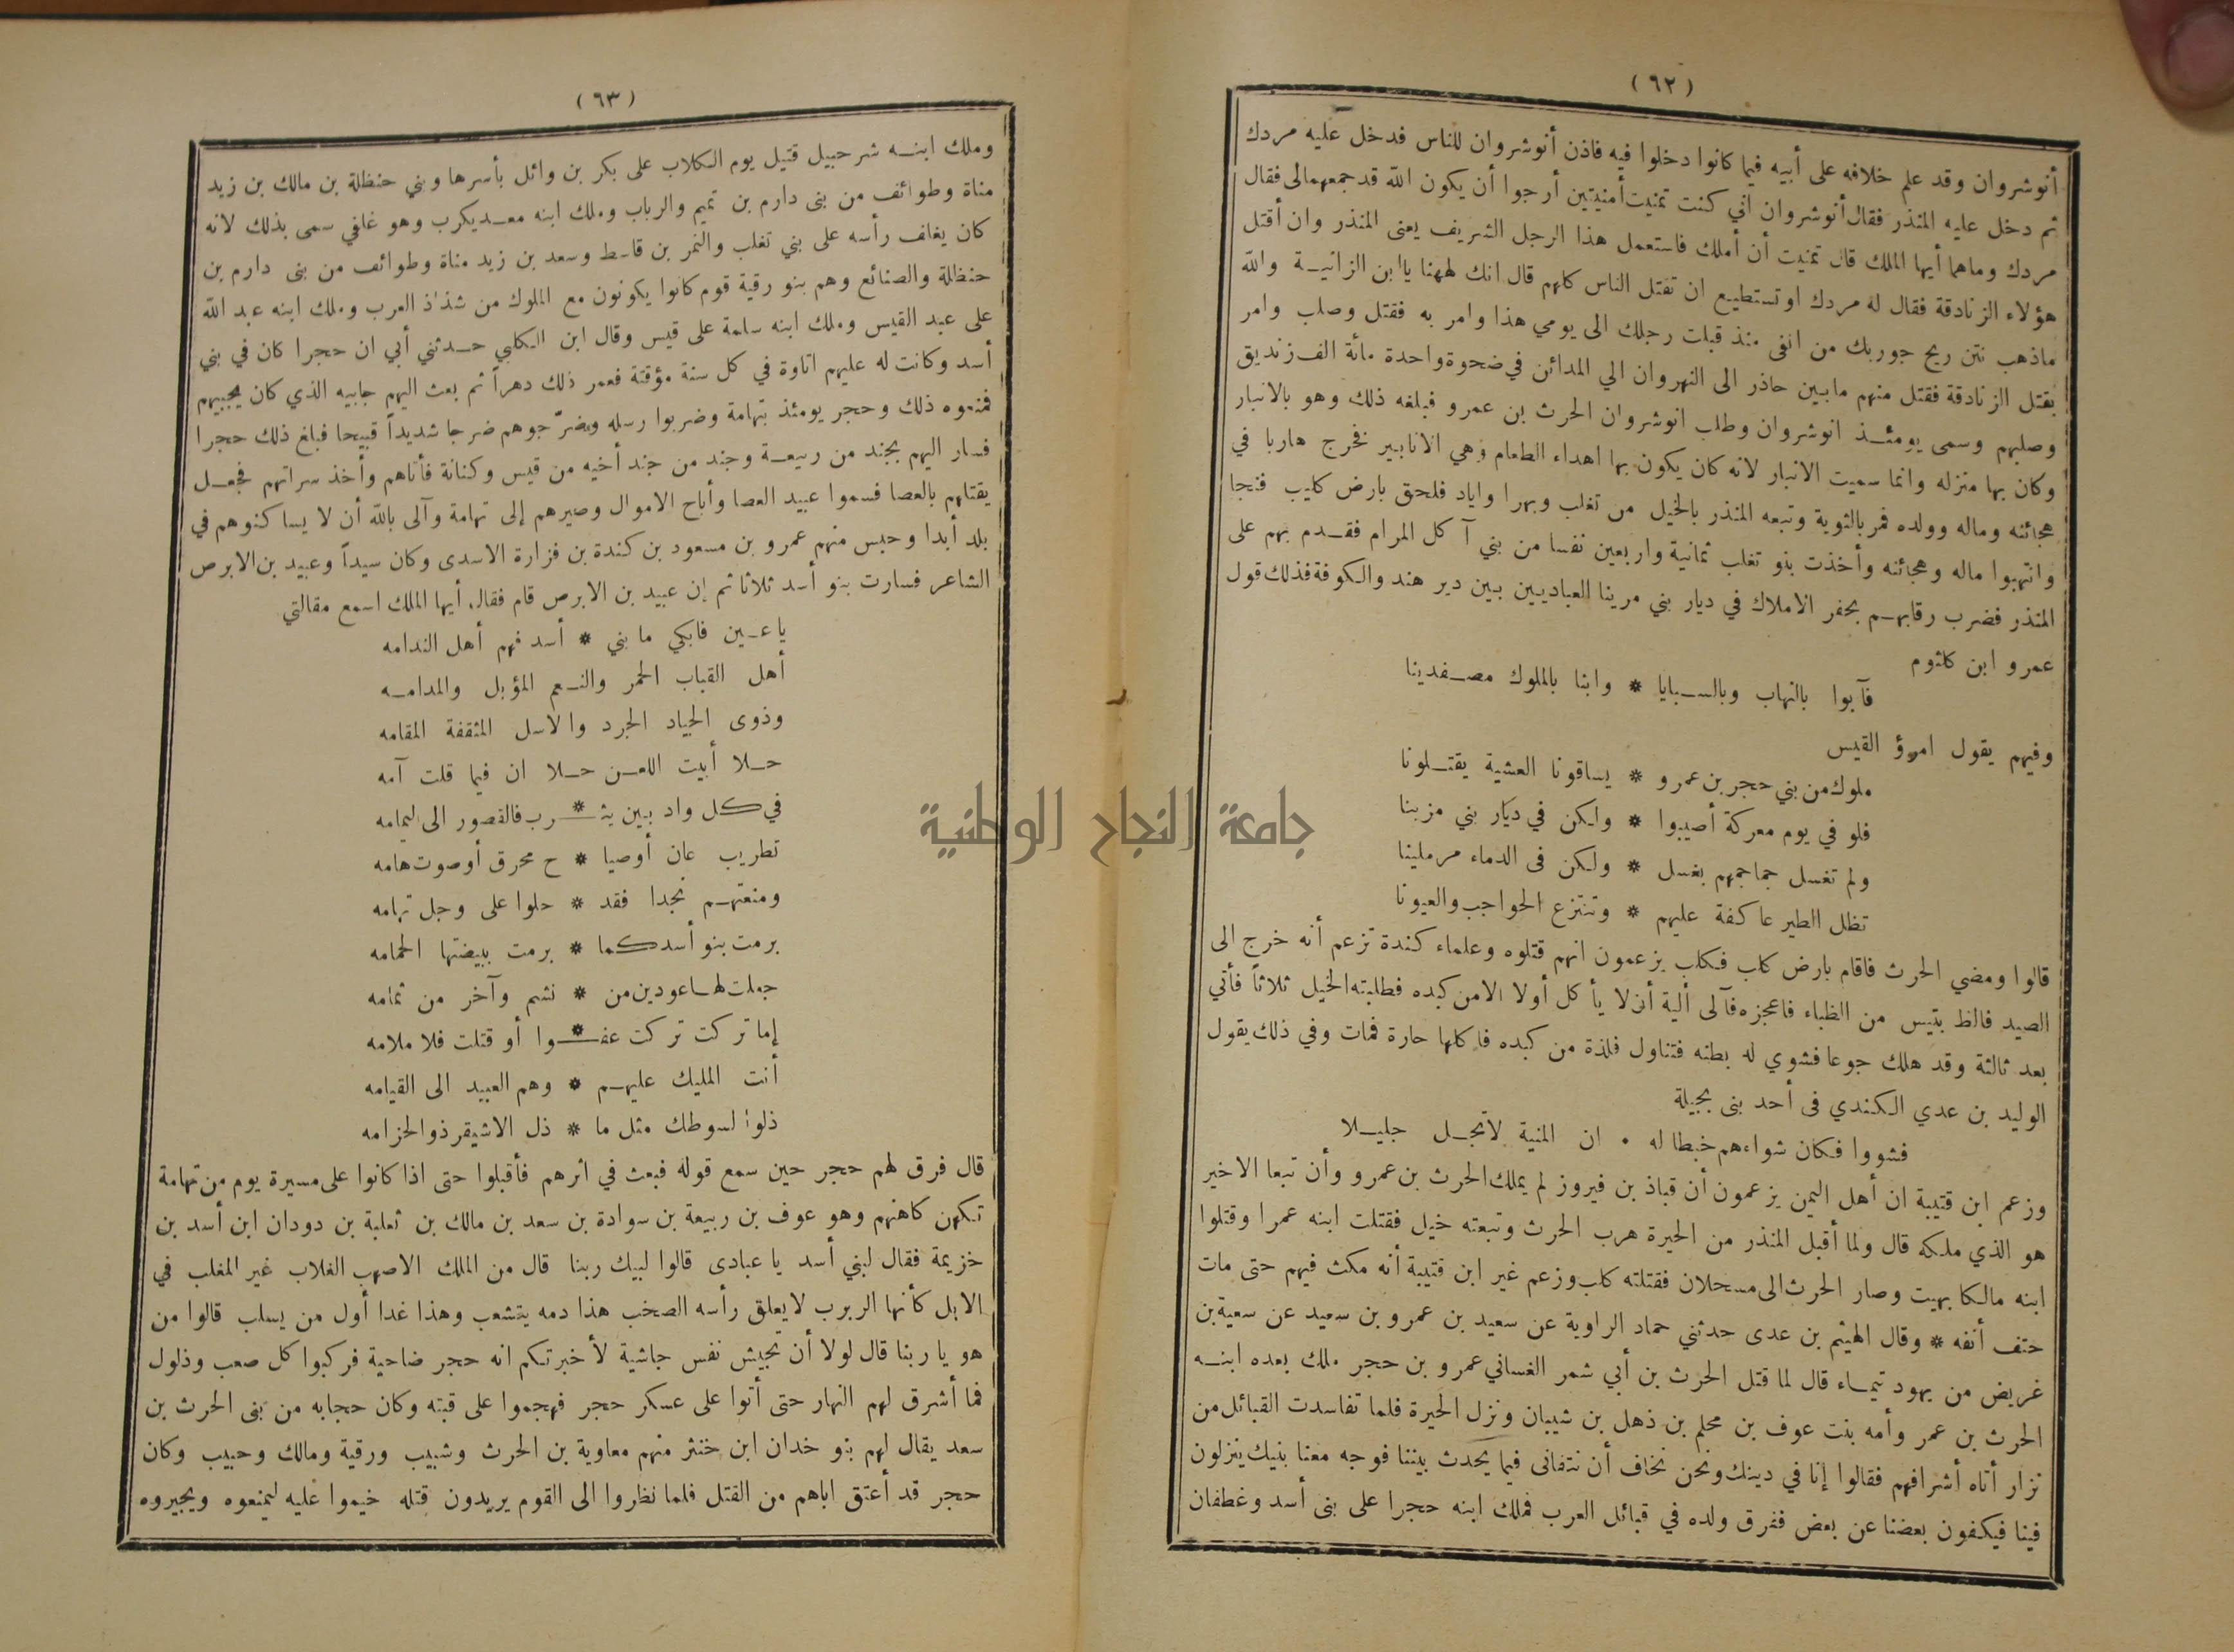 (٦٢)
أنوشروان وقد علم خلافه على أبيه فيما كانوا دخلوا فيه فاذن أنوشروان للناس فدخل عليه مردك
ثم دخل عليه المنذر فقال أنوشروان اني كنت تمنيت أمنيتين أرجوا أن يكون الله قد جمعهما لى فقال
مردك وماهما أيها الملك قال تمنيت أن أملك فاستعمل هذا الرجل الشريف يعنى المنذر وان أقتل
هؤلاء الزنادقة فقال له مردك او تستطيع ان تقتل الناس كلهم قال انك لههنا ياابن الزانية والله
ماذهب نتن ريح جوربك من انفى منذ قبلت رجلك الى يومي هذا وامر به فقتل وصلب وامر
بقتل الزنادقة فقتل منهم مابين حاذر الى النهروان الي المدائن في ضحوة واحدة مائة الف زنديق
وصلبهم وسمى يومئذ انوشروان وطلب انوشروان الحرث بن عمرو فبلغه ذلك وهو بالانبار
وكان بها منزله وانما سميت الانبار لانه كان يكون بها اهداء الطعام وهي الانابير فخرج هاربا في
هجائنه وماله وولده فمر بالثوية وتبعه المنذر بالخيل من تغلب وبهرا واياد فلحق بارض كلب فنجا
وانتهبوا ماله وهجائنه وأخذت بنو تغلب ثمانية واربعين نفسا من بني آكل المرام فقدم بهم على
المنذر فضرب رقابهم بحفر الاملاك في ديار بني مرينا العباديين بين دير هند والكوفة فذلك قول
عمرو ابن كلثوم
فآبوا بالنهاب وبالسبايا * وابنا بالملوك مصفدينا
وفيهم يقول امرؤ القيس
ملوك من بني حجر بن عمرو * يساقونا العشية يقتلونا
فلو في يوم معركة أصيبوا * ولكن في ديار بني مزبنا
ولم تغسل جماجمهم بغسل * ولكن فى الدماء مرملينا
تظل الطير عاكفة عليهم * وتنتزع الحواجب والعيونا
قالوا ومضي الحرث فاقام بارض كلب فكلب يزعمون انهم قتلوه وعلماء كندة تزعم أنه خرج الى
الصيد فالظ بتيس من الظباء فاعجزه فآلى ألية أن لا يأكل أولا الا من كبده فطلبته الخيل ثلاثاً فأتي
بعد ثالثة وقد هلك جوعا فشوي له بطنه فتناول فلذة من كبده فاكلها حارة فمات وفي ذلك يقول
الوليد بن عدي الكندي فى أحد بنى بجيلة
فشووا فكان شواءهم خبطا له • ان المنية لاتجل جليلا
وزعم ابن قتيبة ان أهل اليمن يزعمون أن قباذ بن فيروز لم يملك الحرث بن عمرو وأن تبعا الاخير
هو الذي ملكه قال ولما أقبل المنذر من الحيرة هرب الحرث وتبعته خيل فقتلت ابنه عمرا وقتلوا
ابنه مالكا بهيت وصار الحرث الى مسحلان فقتلته كلب وزعم غير ابن قتيبة أنه مكث فيهم حتى مات
حتف أنفه * وقال الهيثم بن عدى حدثني حماد الراوية عن سعيد بن عمرو بن سعيد عن سعية بن
غريض من يهود تيماء قال لما قتل الحرث بن أبي شمر الغساني عمرو بن حجر ملك بعده ابنه
الحرث بن عمر وأمه بنت عوف بن محلم بن ذهل بن شيبان ونزل الحيرة فلما تفاسدت القبائل من
نزار أتاه أشرافهم فقالوا إنا في دينك ونحن نخاف أن نتفانى فيما يحدث بيننا فوجه معنا بنيك ينزلون
فينا فيكفون بعضنا عن بعض ففرق ولده في قبائل العرب فملك ابنه حجرا على بنى أسد وغطفان
(٦٣)
وملك ابنه شرحبيل قتيل يوم الكلاب على بكر بن وائل بأسرها وبني حنظلة بن مالك بن زيد
مناة وطوائف من بنى دارم بن تميم والرباب وملك ابنه معديكرب وهو غلفي سمى بذلك لانه
كان يغلف رأسه على بني تغلب والنمر بن قاسط وسعد بن زيد مناة وطوائف من بنى دارم بن
حنظلة والصنائع وهم بنو رقية قوم كانوا يكونون مع الملوك من شذاذ العرب وملك ابنه عبد الله
على عبد القيس وملك ابنه سلمة على قيس وقال ابن الكلبي حدثني أبي ان حجرا كان في بني
أسد وكانت له عليهم اتاوة في كل سنة مؤقتة فعمر ذلك دهراً ثم بعث اليهم جابيه الذي كان يجبيهم
فمنعوه ذلك وحجر يومئذ بتهامة وضربوا رسله وضرّجوهم ضرجا شديداً قبيحا فبلغ ذلك حجرا
فسار اليهم بجند من ربيعة وجند من جند أخيه من قيس وكنانة فأتاهم وأخذ سراتهم فجعل
يقتلهم بالعصا فسموا عبيد العصا وأباح الاموال وصيرهم إلى تهامة وآلى بالله أن لا يساكنوهم في
بلد أبدا وحبس منهم عمرو بن مسعود بن كندة بن فزارة الاسدى وكان سيداً وعبيد بن الابرص
الشاعر فسارت بنو أسد ثلاثا ثم إن عبيد بن الابرص قام فقال أيها الملك اسمع مقالتي
يا عين فابكي ما بني * أسد فهم أهل الندامه
أهل القباب الحمر والنعم المؤبل والمدامه
وذوى الجياد الجرد والاسل المثقفة المقامه
حلا أبيت اللعن حلا ان فيما قلت آمه
في كل واد بين يثـ * ـرب فالقصور الى اليمامه
تطريب عان أوصيا * ح محرق أو صوت هامه
ومنعتهم نجدا فقد * حلوا على وجل تهامه
برمت بنو أسد كما * برمت ببيضتها الحمامه
جعلت لها عودين من * نشم وآخر من ثمامه
إما تركت تركت عفـ * ـوا أو قتلت فلا ملامه
أنت المليك عليهم * وهم العبيد الى القيامه
ذلوا لسوطك مثل ما * ذل الاشيقر ذو الخزامه
قال فرق لهم حجر حين سمع قوله فبعث في اثرهم فأقبلوا حتى اذا كانوا على مسيرة يوم من تهامة
تكهن كاهنهم وهو عوف بن ربيعة بن سوادة بن سعد بن مالك بن ثعلبة بن دودان ابن أسد بن
خزيمة فقال لبني أسد يا عبادى قالوا لبيك ربنا قال من الملك الاصهب الغلاب غير المغلب في
الابل كأنها الربرب لا يعلق رأسه الصخب هذا دمه يتشعب وهذا غدا أول من يسلب قالوا من
هو يا ربنا قال لولا أن تجيش نفس جاشية لأخبرتكم انه حجر ضاحية فركبوا كل صعب وذلول
فما أشرق لهم النهار حتى أتوا على عسكر حجر فهجموا على قبته وكان حجابه من بنى الحرث بن
سعد يقال لهم بنو خدان ابن خنثر منهم معاوية بن الحرث وشبيب ورقية ومالك وحبيب وكان
حجر قد أعتق اباهم من القتل فلما نظروا الى القوم يريدون قتله خيموا عليه ليمنعوه ويجيروه
جامعة النجاح الوطنية